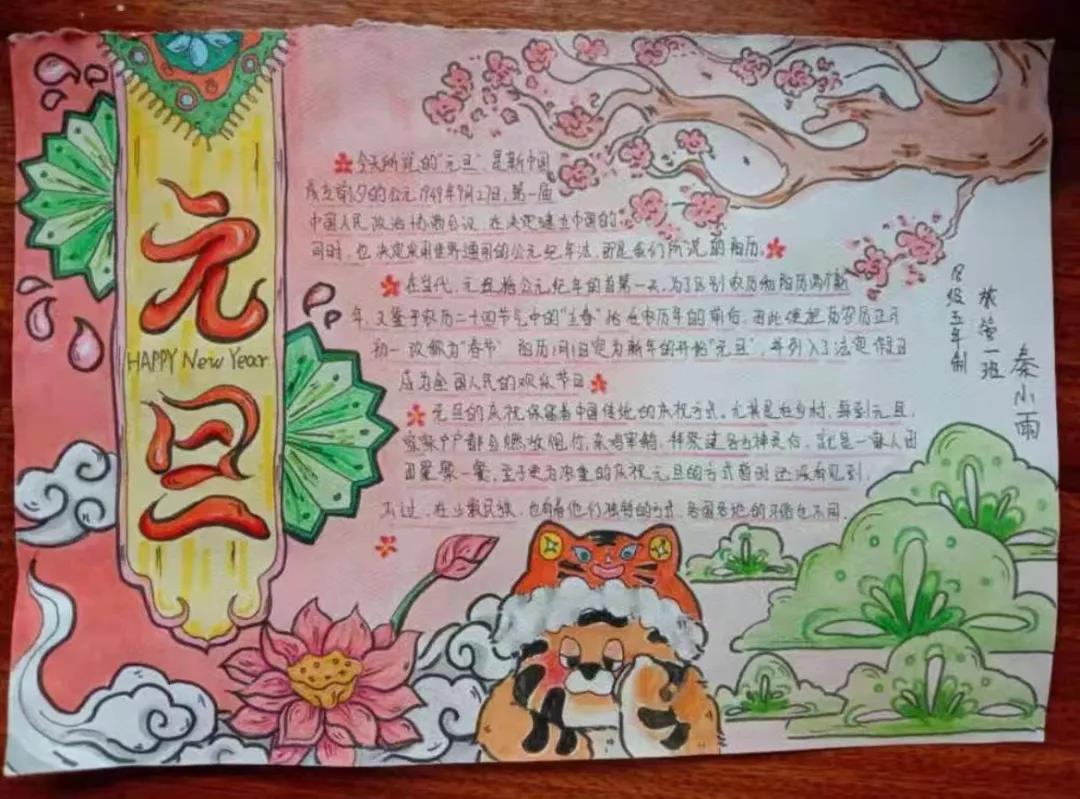 元旦
HAPPY New Year
今天所说的“元旦”,是新中国
成立前夕的公元1949年9月27日,第一届
中国人民政治协商会议,在决定建立中国的
同时,也决定采用世界通用的公元纪年法,即是我们所说的阳历。
在当代,元旦指公元纪年的首第一天,为了区别农历和阳历两个新
年,又鉴于农历二十四节气中的“立春”恰在农历年的前后,因此便把为农历正月
初一改称为“春节”阳历1月1日定为新年的开始“元旦”,并列入了法定假日
成为全国人民的欢乐节日
元旦的庆祝保留着中国传统的庆祝方式,尤其是在乡村,每到元旦,
家家户户都会燃放烟竹,杀鸡宰鹅,拜祭过各方神灵后,就是一家人团
团聚聚一餐,至于更为浓重的庆祝元旦的方式暂时还没有见到,
不过,在少数民族,也有着他们独特的方式,各国各地的习俗也不同.
级五年制
一班
秦小雨